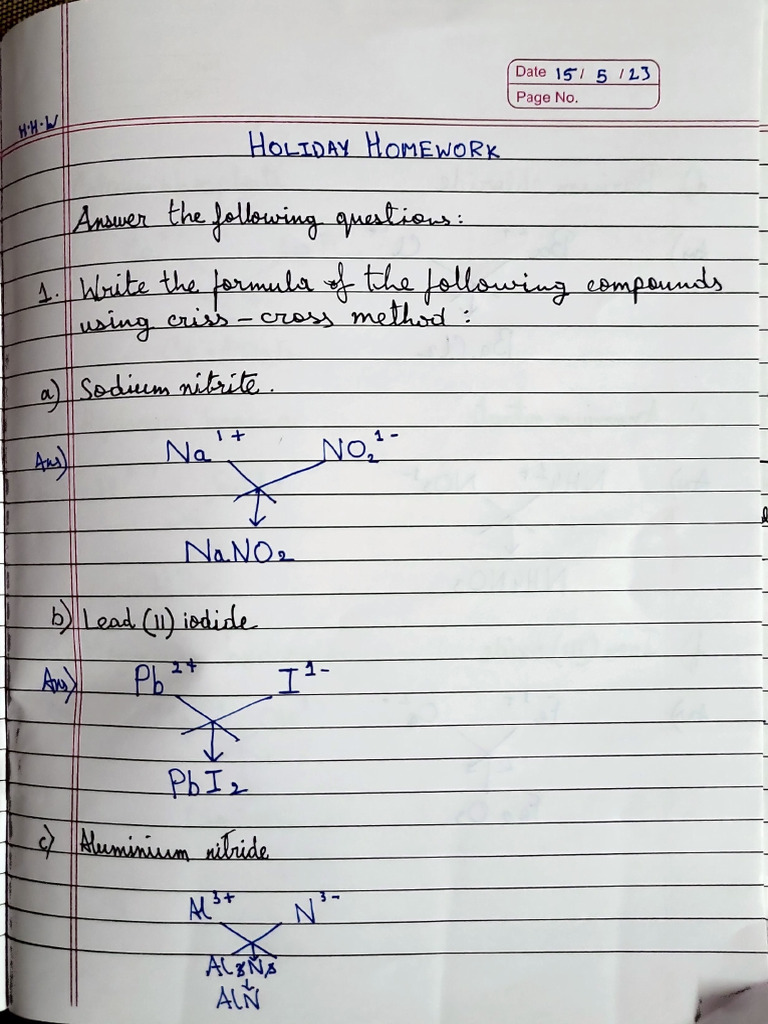 Date 15/ 5 /23
Page No.
H.H.W
HOLIDAY HOMEWORK
Answer the following questions:
1. Write the formula of the following compounds
using criss-cross method :
a) Sodium nitrite.
Ans) Na¹⁺ NO₂¹⁻
NaNO₂
b) Lead (11) iodide
Ans) Pb²⁺ I¹⁻
PbI₂
c) Aluminium nitride
Al³⁺ N³⁻
Al₃N₃
AlN